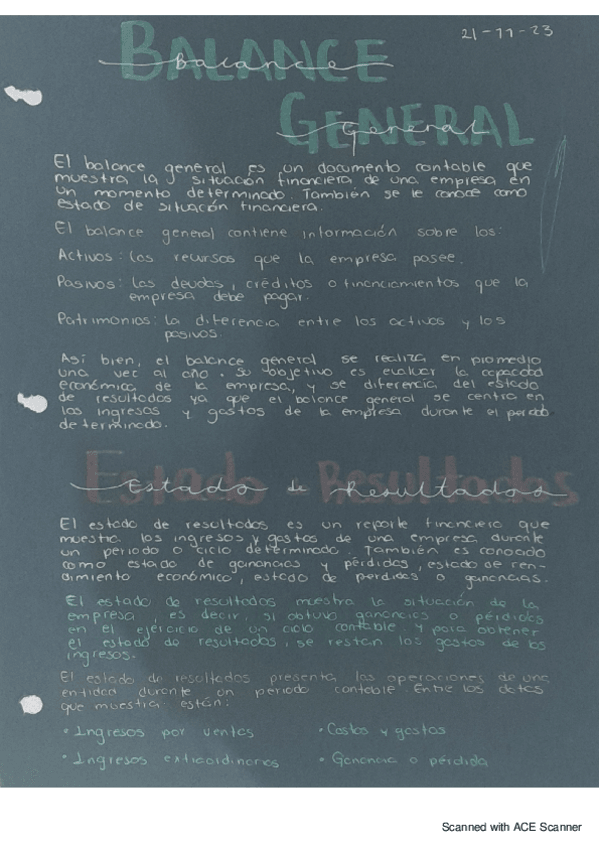 21-11-23
BALANCE
balance
GENERAL
general
El balance general es un documento contable que
muestra la situación financiera de una empresa en
un momento determinado. También se le conoce como
estado de situación financiera.
El balance general contiene información sobre los:
Activos: los recursos que la empresa posee.
Pasivos: Las deudas, créditos o financiamientos que la
empresa debe pagar.
Patrimonios: La diferencia entre los activos y los
pasivos.
Así bien, el balance general se realiza en promedio
una vez al año. Su objetivo es evaluar la capacidad
económica de la empresa, y se diferencia del estado
de resultados ya que el balance general se centra en
los ingresos y gastos de la empresa durante el periodo
determinado.
Estado de Resultados
Estado de Resultados
El estado de resultados es un reporte financiero que
muestra los ingresos y gastos de una empresa durante
un periodo o ciclo determinado. También es conocido
como estado de ganancias y pérdidas, estado de ren-
dimiento económico, estado de perdidas o ganancias.
El estado de resultados muestra la situación de la
empresa, es decir, si obtuvo ganancias o pérdidas
en el ejercicio de un ciclo contable y para obtener
el estado de resultados, se restan los gastos de los
ingresos.
El estado de resultados presenta las operaciones de una
entidad durante un periodo contable. Entre los datos
que muestra están:
• Ingresos por ventas
• Costos y gastos
• Ingresos extraordinarios
• Ganancia o pérdida
Scanned with ACE Scanner